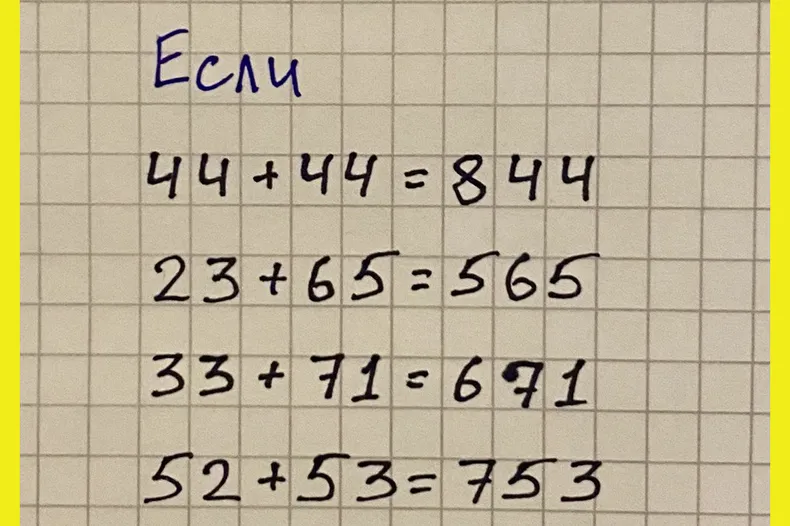 Если
44+44=844
23+65=565
33+71=671
52+53=753